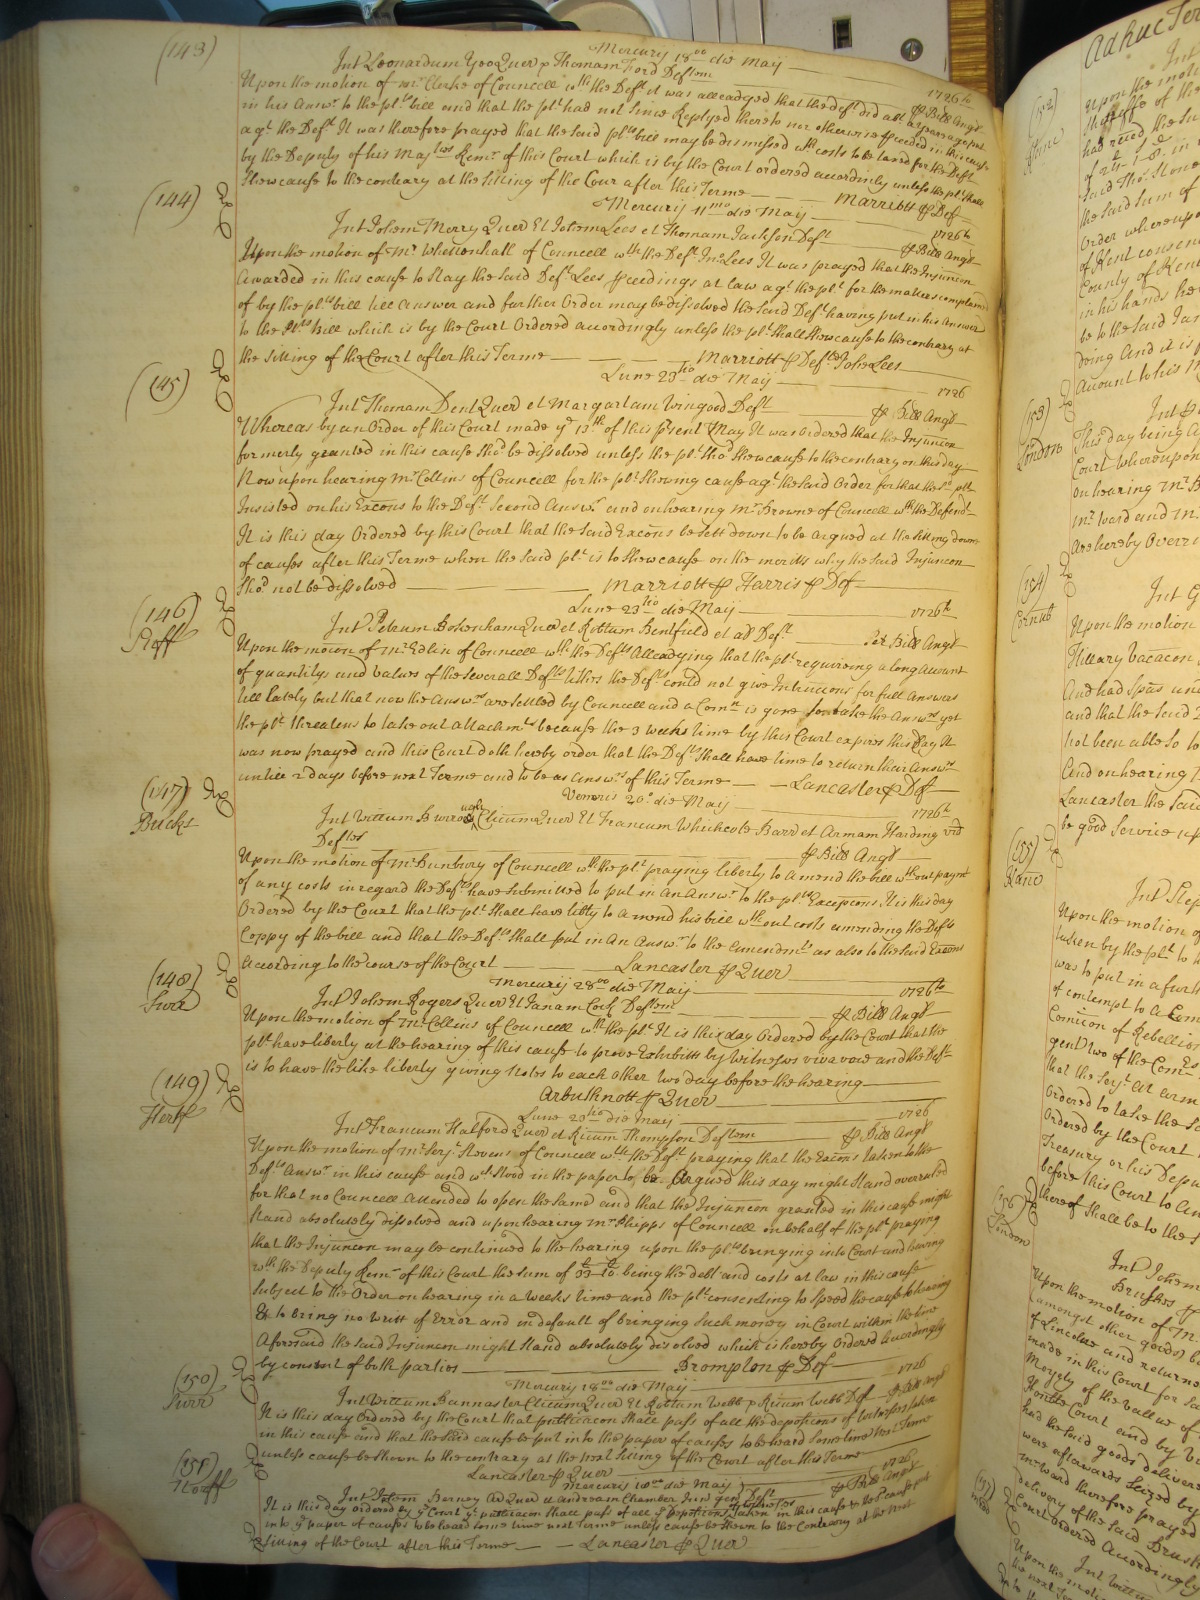 (143)
Mercurij 18o die Maij 1726to
Int Leonardum Yeo Quer & Thomam Ford Deftem p Bill Angt
Upon the motion of Mr Clerke of Councell wth the Deft it was alleadged that the deft did all
in his Answr to the plts bill and that the plt had not since Replyed thereto nor otherwise pceeded in this cause
agt the Deft It was therefore prayed that the said plts bill may be dismissed wth costs to be taxed for the Deft
by the Deputy of his Majties Remr of this Court which is by the Court ordered accordingly unless the plt shall
Shew cause to the contrary at the Sitting of the Cour after this Terme Marriott p Deft
(144)
Mercurij 11mo die Maij 1726to
Int Johem Merry Quer Et Johem Lees et Thomam Jackson Deft p Bill Angt
Upon the motion of Mr Whettenhall of Councell wth the Deft Jno Lees It was prayed that the Injuncon
Awarded in this cause to Stay the said Deft Lees pceedings at law agt the plt for the matters complained
of by the plts bill till Answer and further Order may be dissolved the said Deft having put in his Answer
to the plts Bill which is by the Court Ordered accordingly unless the plt shall shew cause to the contrary at
the sitting of the Court after this Terme Marriott p Deft John Lees
(145)
Lune 23tio die Maij 1726
Int Thomam Dent Quer et Margartam Wingood Deft p Bill Angt
Whereas by an Order of this Court made ye 13th of this psent May It was ordered that the Injuncon
formerly granted in this cause shod be dissolved unless the plt shod shew cause to the contrary on this day
Now upon hearing Mr Collins of Councell for the plt shewing cause agt the said Order for that the sd plt
Insisted on his Excons to the Deft Second Answr and on hearing Mr Browne of Councell wth the Defendt
It is this day Ordered by this Court that the said Excons be sett down to be argued at the sitting down
of causes after this Terme when the said plt is to shew cause on the meritts why the said Injuncon
Shod not be dissolved Marriott p Harris p Def
(146)
Staff
Lune 23tio die Maij 1726to
Int Petrum Bokenham Quer et Robtum Bentfield et al Deft Per Bill Angt
Upon the motion of Mr Edlin of Councell wth the Defts Alleadging that the plt requireing a long Account
of quantitys and values of the severall Defts tithes the Defts could not give Intrucons for full Answrs
till lately but that now the Answrs are settled by Councell and a Comn is gone to take the Answrs yet
the plt threatens to take out attachmts because the 3 weeks time by this Court expires this day It
was now prayed and this Court doth hereby order that the Deft shall have time to return their Answrs
untill 2 days before next Terme and to be as Answrs of this Terme Lancaster p Def
(147)
Bucks
Veneris 20o die Maij 1726to
Int Willum Burrough Clicum Quer Et Francum Whichcote Barrt et Armam Harding vid
Deftes p Bill Angt
Upon the motion of Mr Bunbury of Councell wth the plt praying liberty to Amend the bill wthout paymt
of any costs in regard the Defts have submitted to put in an Answr to the plts Excepcons It is this day
Ordered by the Court that the plt shall have libty to amend his bill wthout costs amending the Defts
Coppy of the bill and that the Defts shall put in an Answr to the amendmts as also to the said Excons
According to the course of the Court Lancaster p Quer
(148)
Surr
Mercurij 28o die Maij 1726to
Int Johem Rogers Quer Et Janam Cock Deftem p Bill Angt
Upon the motion of Mr Collins of Councell wth the plt It is this day Ordered by the Court that the
plt have liberty at the hearing of this cause to prove Exhibitts by Witnesses viva voce and the Deft
is to have the like liberty giving notes to each other two day before the hearing
Arbuthnott p Quer
(149)
Hertf
Lune 23tio die Maij 1726
Int Francum Halford Quer et Ricum Thompson Deftem p Bill Angt
Upon the motion of Mr Serjt Stevens of Councell wth the Deft praying that the Excons taken to the
Defts Answr in this cause and wch stood in the paper to be Argued this day might stand overruled
for that no Councell attended to open the same and that the Injuncon granted in this cause might
stand absolutely dissolved and upon hearing Mr Phipps of Councell in behalf of the plt praying
that the Injuncon may be continued to the hearing upon the plts bringing into Court and leaving
wth the Deputy Remr of this Court the sum of being the debt and costs at law in this cause
Subject to the Order on hearing in a weeks time and the plt consenting to speed the cause to hearing
& to bring no writt of Error and in default of bringing such money in Court within the time
Aforesaid the said Injuncon might stand absolutely dissolved which is hereby Ordered Accordingly
by consent of both parties Brompton p Def
(150)
Surr
Mercurij 18o die Maij 1726
Int Willum Bannaster Clicum Quer Et Robtum Webb & Ricum Webb Def p Bill Angt
It is this day Ordered by the Court that publicacon shall pass of all the depositions of witnesses taken
in this cause and that the said cause be put into the paper of causes to be heard sometime next Terme
unless cause be shown to the contrary at the next sitting of the Court after this Terme
Lancaster p Quer
(151)
Norff
Mercurij die Maij 1726
Int Johem Berney Ar Quer et Andream Chamber Junr gen Deft p Bill Angt
It is this day ordered by ye Court yt publicacon shall pass of all ye depositions of witnesses taken in this cause & ye cause be put
into ye paper of causes to be heard some time next Terme unless cause be shown to the Contrary at the next
Sitting of the Court after this Terme Lancaster p Quer
Ad huc Ter
(152)
Upon the motion
had read the
said Tho: Stone
the said sum of
Order whereupon
of Kent consen
County of Kent
in his hands
be to the said Jam
doing And it is
Account to his M
(153)
London
This day being
Court whereupon
on hearing Mr B
Mr Ward and M
Are hereby Overru
(154)
Cornub
Int G
Upon the motion
Hillary Vacacon
And had
and that the said
not been able so
And on hearing
Lancaster the said
be good Service up
(155)
Int Step
Upon the motion of
taken by the plt to
was to put in a furth
of contempt to a Com
Comicon of Rebellion
gent two of the Comrs
that the Serjt at arm
Ordered to take the
Ordered by the Court
Treasury or his Depu
before this Court to An
thereof shall be to the
(156)
London
Int Johem
Brushes p
Upon the motion of M
(amongst other goods)
of Lincolne and returne
made in this Court for
Moyety of the value of
Court and by
had the said goods deliver
were afterwards seized by
inward therefore prayed
delivery of the said Brush
Court ordered Accordingly
(157)
Int Willm
Upon the motion
the next